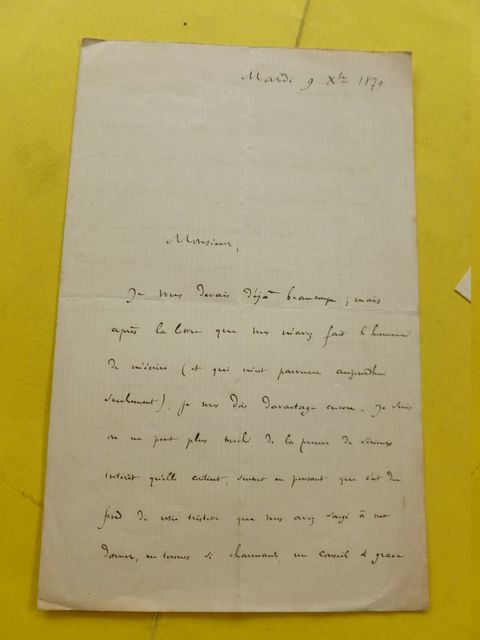 Mardi 9 Xbre 1879
Monsieur,
Je vous devais déjà beaucoup ; mais
après la lettre que vous m'avez fait l'honneur
de m'écrire (et qui m'est parvenue aujourd'hui
seulement), je vous dois davantage encore. Je suis
on ne peut plus touché de la preuve de sérieux
intérêt qu'elle contient, surtout en pensant que c'est du
fond de votre tristesse que vous avez songé à me
donner, en termes si charmants, un conseil si grave